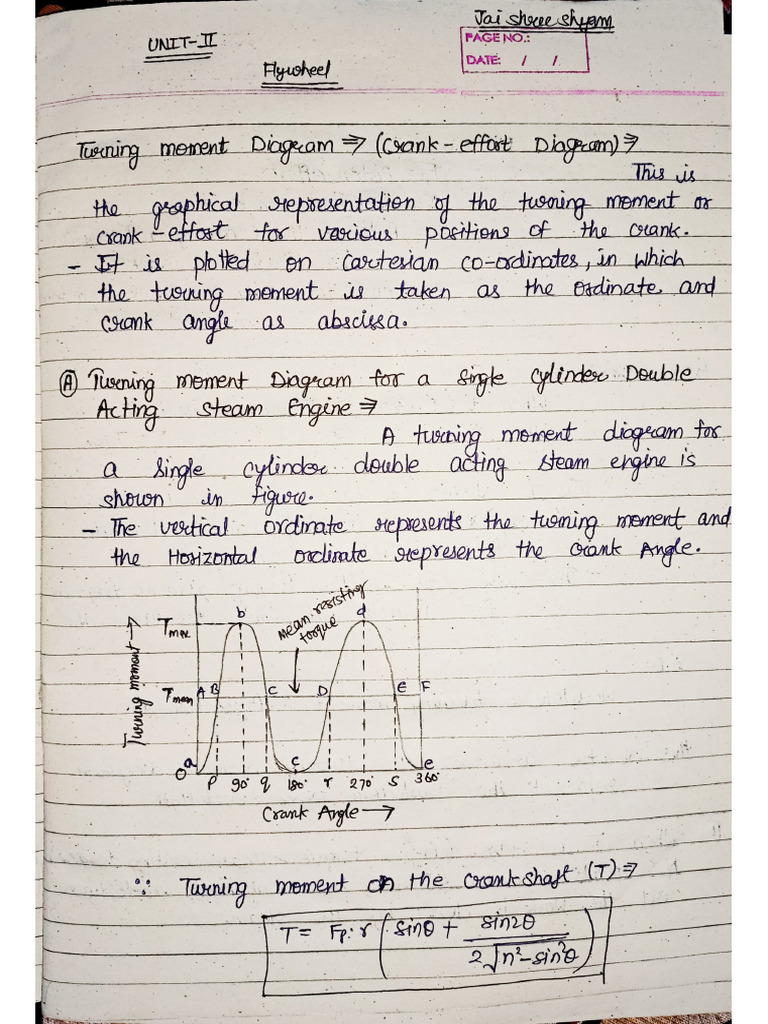 Jai Shree Shyam
UNIT-II
PAGE NO.:
DATE: / /
Flywheel
Turning moment Diagram ⇒ (Crank-effort Diagram) ⇒
This is
the graphical representation of the turning moment or
crank-effort for various positions of the crank.
- It is plotted on cartesian co-ordinates, in which
the turning moment is taken as the ordinate and
crank angle as abscissa.
(A) Turning moment Diagram for a single cylinder Double
Acting Steam Engine ⇒
A turning moment diagram for
a single cylinder double acting steam engine is
shown in figure.
- The vertical ordinate represents the turning moment and
the Horizontal ordinate represents the crank Angle.
Turning moment →
Tmax
b
mean resisting
torque
d
Tmean
A B C D E F
a
c
e
O
p 90° q 180° r 270° s 360°
Crank Angle →
∵ Turning moment on the crankshaft (T) ⇒
T = Fp.r (sinθ + sin2θ / 2√n²-sin²θ)